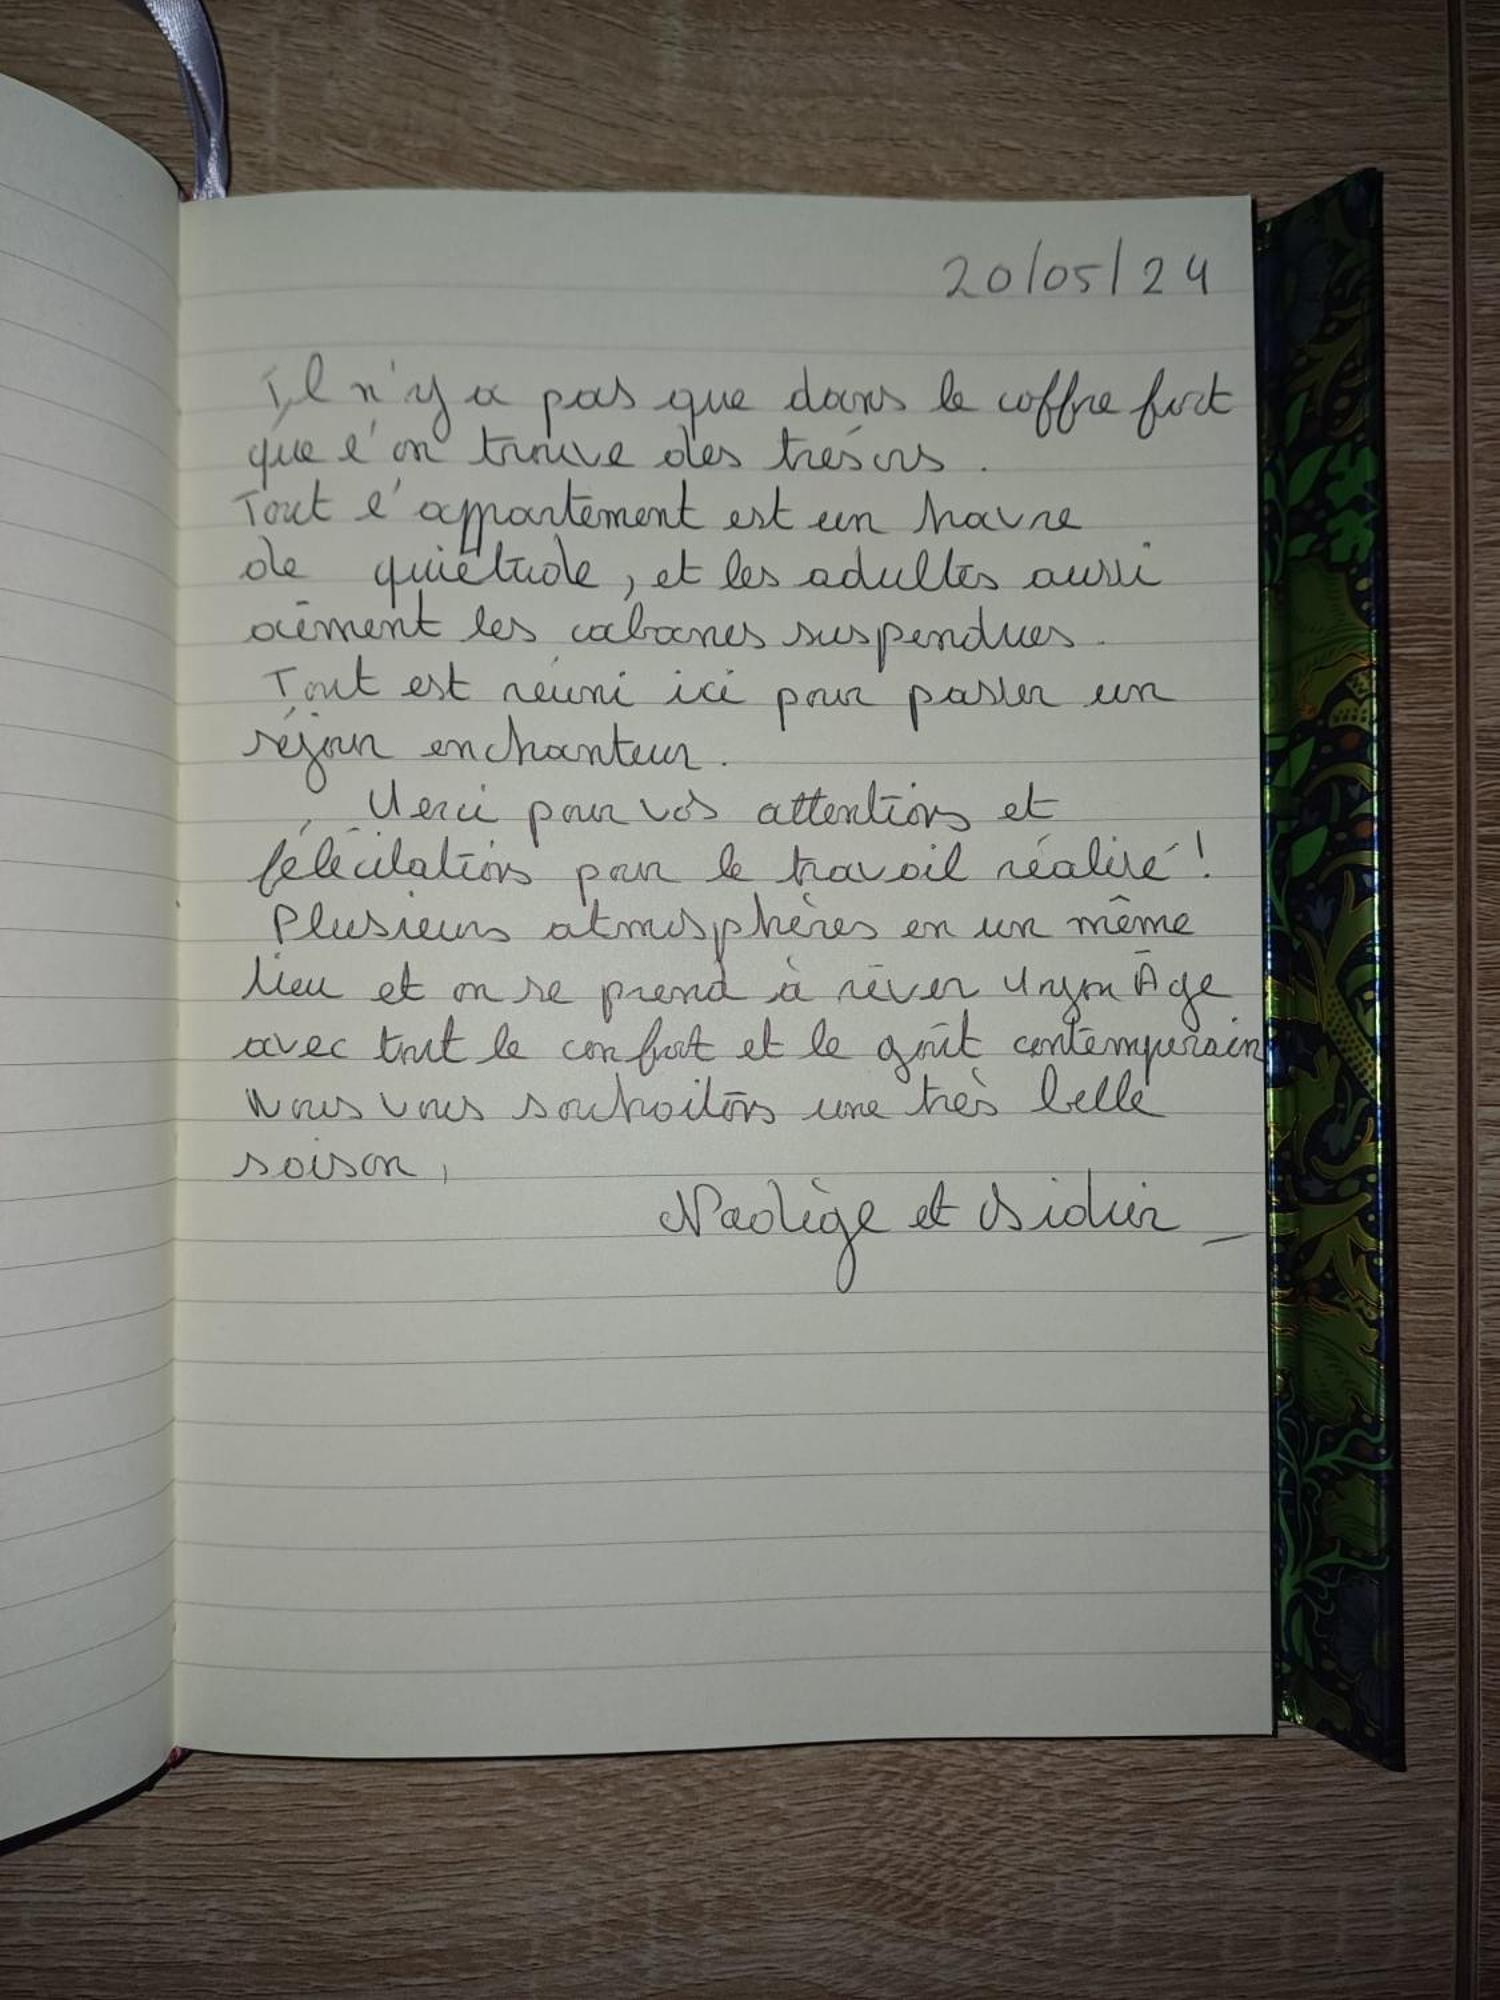 20/05/24
Il n'y a pas que dans le coffre fort
que l'on trouve des trésors.
Tout l'appartement est un havre
de quiétude, et les adultes aussi
aiment les cabanes suspendues.
Tout est réuni ici pour passer un
séjour enchanteur.
Merci pour vos attentions et
félicitations pour le travail réalisé !
Plusieurs atmosphères en un même
lieu et on se prend à rêver Moyen Âge
avec tout le confort et le goût contemporain
Nous vous souhaitons une très belle
saison,
Nadège et Didier _